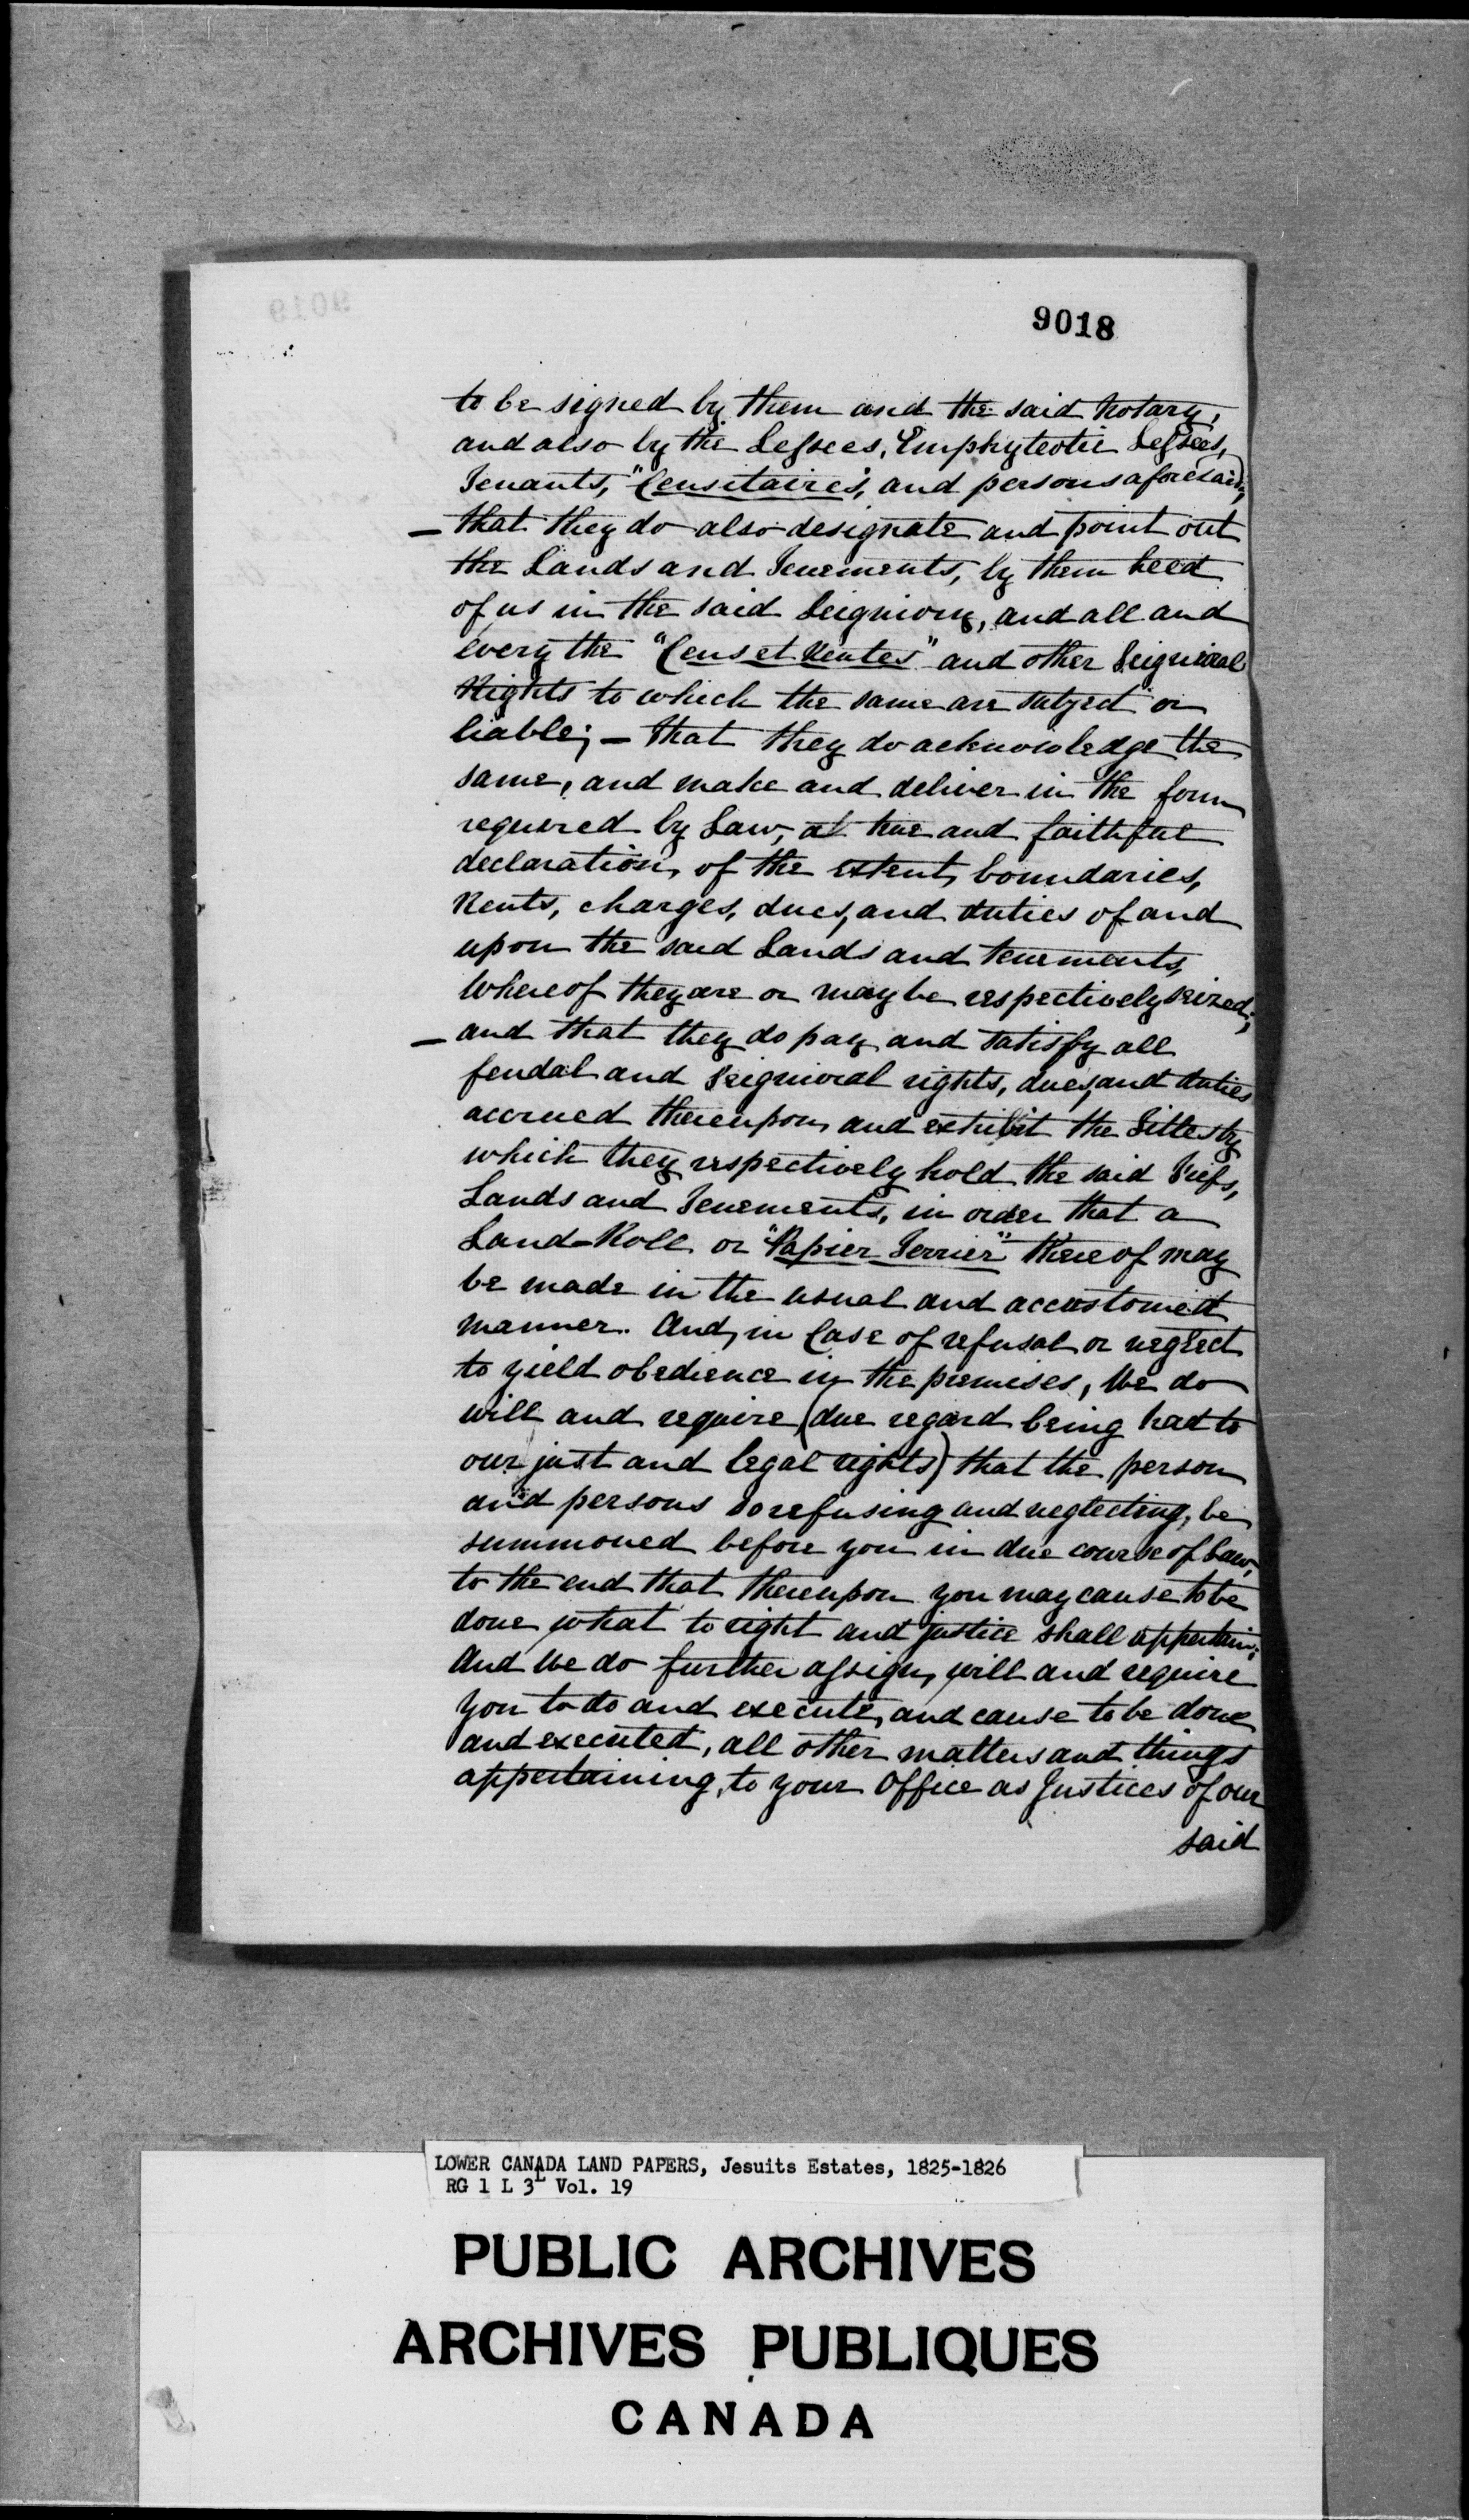 9018
to be signed by them and the said Notary,
and also by the Lessees, Emphyteotic Lessees,
Tenants, "Censitaires", and persons aforesaid;
— that they do also designate and point out
the Lands and Tenements, by them held
of us in the said Seigniory, and all and
every the "Cens et Rentes" and other Seignioral
Rights to which the same are subject or
liable; — that they do acknowledge the
same, and make and deliver in the form
required by Law, a true and faithful
declaration, of the extent, boundaries,
Rents, charges, dues, and duties of and
upon the said Lands and tenements,
whereof they are or may be respectively seized;
— and that they do pay and satisfy all
feudal and seignioral rights, dues, and duties
accrued thereupon, and exhibit the Titles by
which they respectively hold the said Fiefs,
Lands and Tenements, in order that a
Land-Roll or "Papier Terrier" thereof may
be made in the usual and accustomed
manner. And, in Case of refusal or neglect
to yield obedience in the premises, We do
will and require (due regard being had to
our just and legal rights) that the person
and persons so refusing and neglecting, be
summoned before you in due course of Law,
to the end that thereupon you may cause to be
done what to right and justice shall appertain;
And We do further assign, will and require
you to do and execute, and cause to be done
and executed, all other matters and things
appertaining, to your Office as Justices of our
said
LOWER CANADA LAND PAPERS, Jesuits Estates, 1825-1826
RG 1 L 3L Vol. 19
PUBLIC ARCHIVES
ARCHIVES PUBLIQUES
CANADA